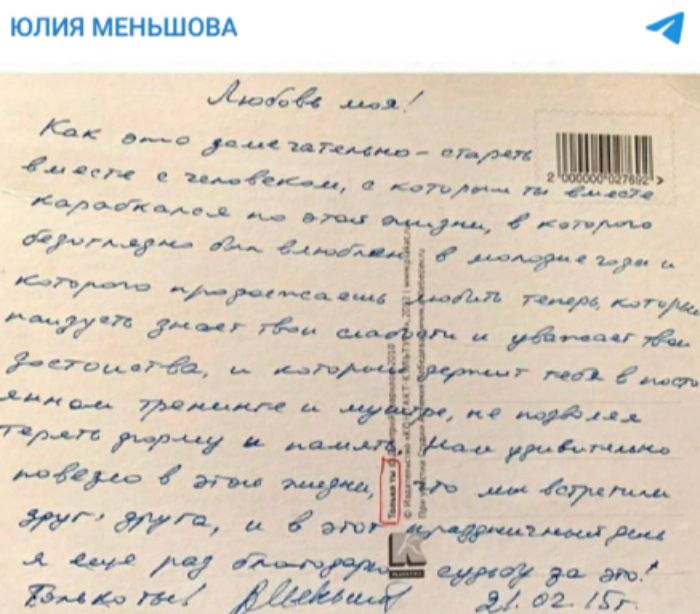 ЮЛИЯ МЕНЬШОВА
Любовь моя!
Как это замечательно – стареть
вместе с человеком, с которым ты вместе
карабкался по этой жизни, в которого
безоглядно был влюблен в молодые годы и
которого продолжаешь любить теперь, который
наизусть знает твои слабости и уважает твои
достоинства, и который держит тебя в посто
янном тренинге и муштре, не позволяя
терять форму и память. Нам удивительно
повезло в этой жизни, что мы встретили
друг друга, и в этот праздничный день
я еще раз благодарю судьбу за это!
Только ты! ВМеньшов 21.02.15г.
2 000000 027692 >
Только ты